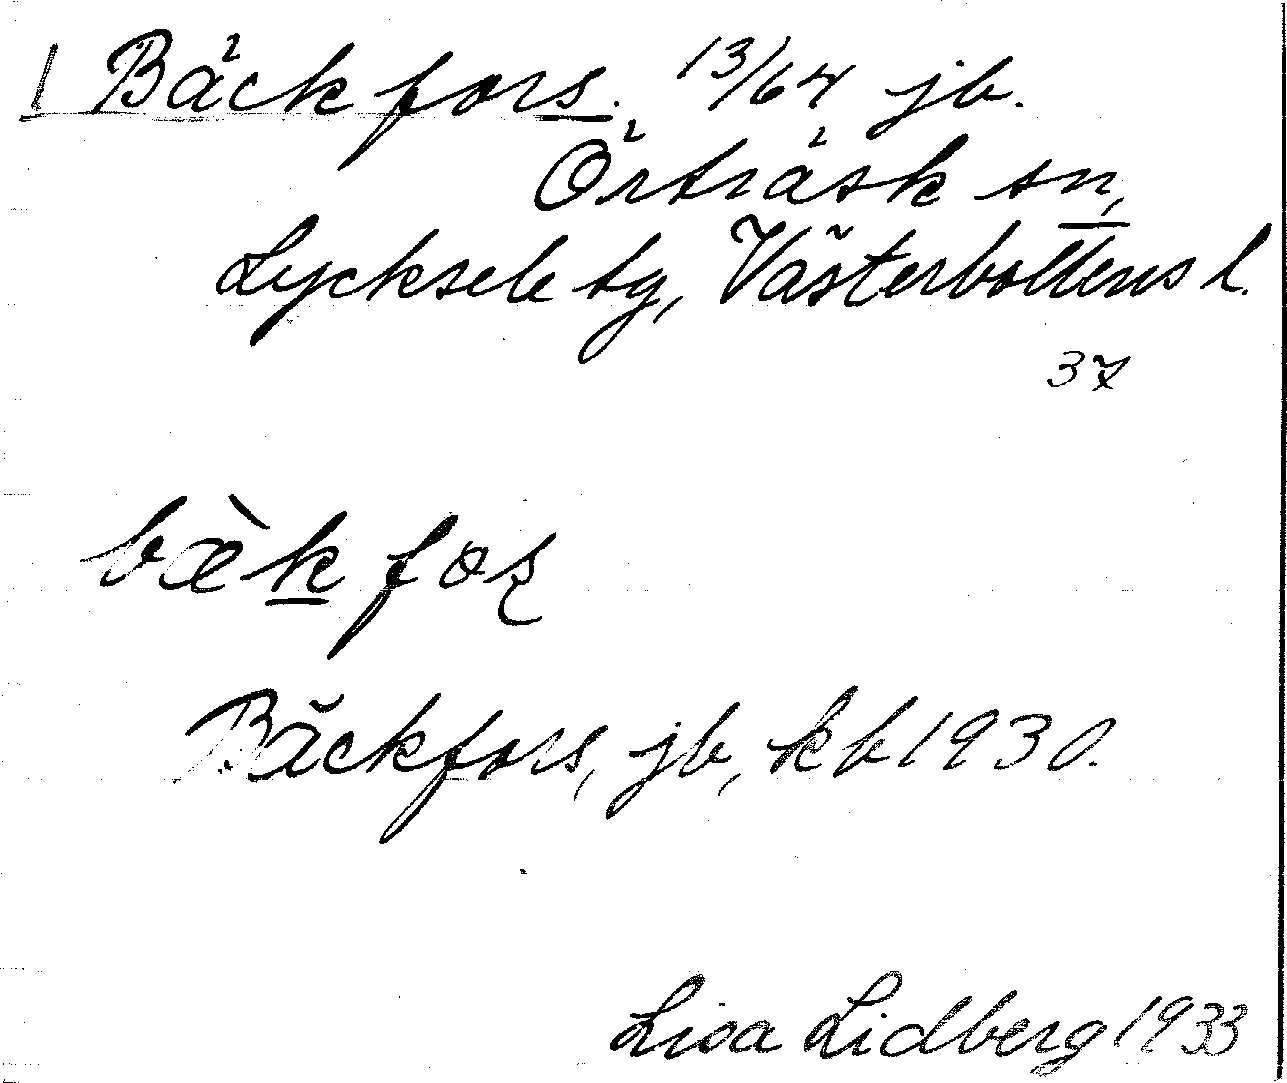 1 Bäckfors. 13/64 jb.
Örträsk sn,
Lycksele tg, Västerbottens l.
37
bæ̀k foʂ
Bäckfors, jb, kb 1930.
Lisa Lidberg 1933